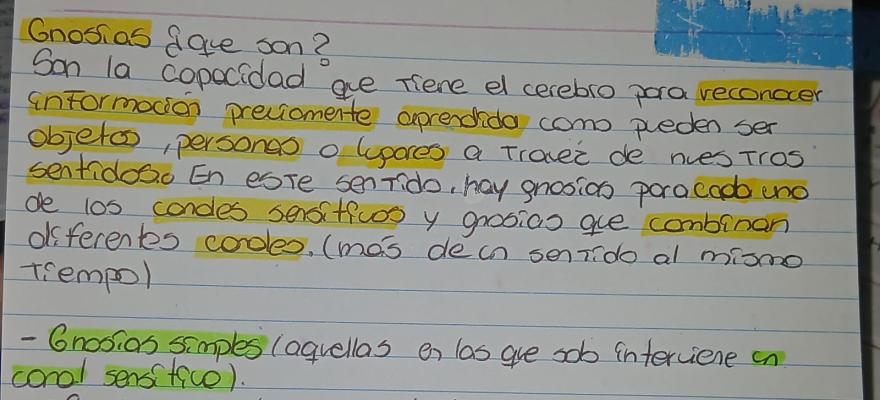 Gnosias ¿que son?
Son la capacidad que tiene el cerebro para reconocer
información previamente aprendida como pueden ser
objetos, personas o lugares a travéz de nuestros
sentidos. En este sentido, hay gnosias para cada uno
de los canales sensitivos y gnosias que combinan
diferentes canales. (más de un sentido al mismo
tiempo)
- Gnosias simples (aquellas en las que solo interviene un
canal sensitivo).